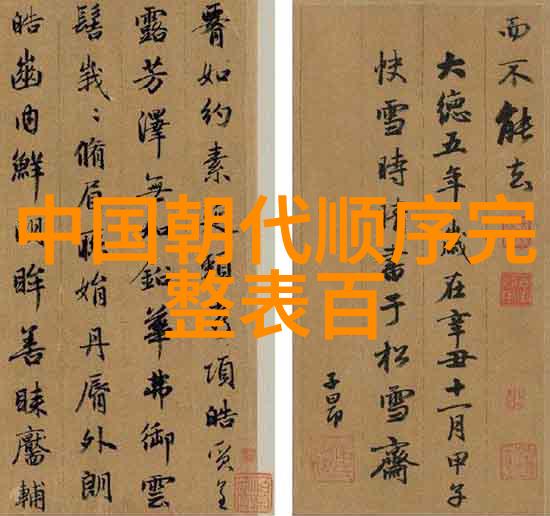 中国朝代顺序完
整表百
而不能去
大德五年歲在辛丑十一月甲子
快雪時晴書于松雪齋
子昂
如約素項皓質呈
露芳澤無加鉛華弗御雲
髻峩〻脩眉聯娟丹脣外朗
皓齒内鮮明眸善睞靨輔